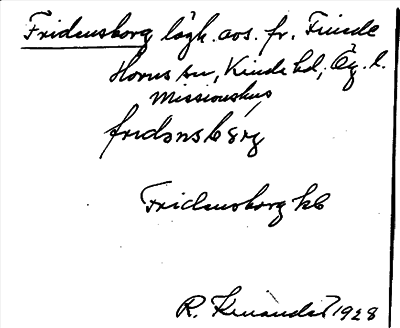 Fridensborg lägh. avs. fr. Finede
Horns sn, Kinda hd, Ög. l.
Missionshus
fridənsbərg
Fridensborg kb
R. 1928